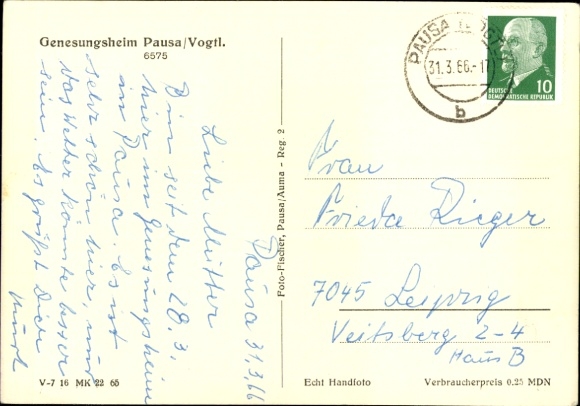 Genesungsheim Pausa/Vogtl.
6575
Pausa 31.3.66
Liebe Mutter
Bin seit dem 28.3.
hier im Genesungsheim
in Pausa. Es ist
sehr schön hier, nur
das Wetter könnte besser
sein. Es grüßt Dich
Kurt
V-7 16 MK 22 65
Foto-Fischer, Pausa/Auma - Reg. 2
PAUSA
31.3.66.-17
b
10
DEUTSCHE
DEMOKRATISCHE REPUBLIK
Frau
Frieda Rieger
7045 Leipzig
Veitsberg 2-4
Haus B
Echt Handfoto
Verbraucherpreis 0.25 MDN